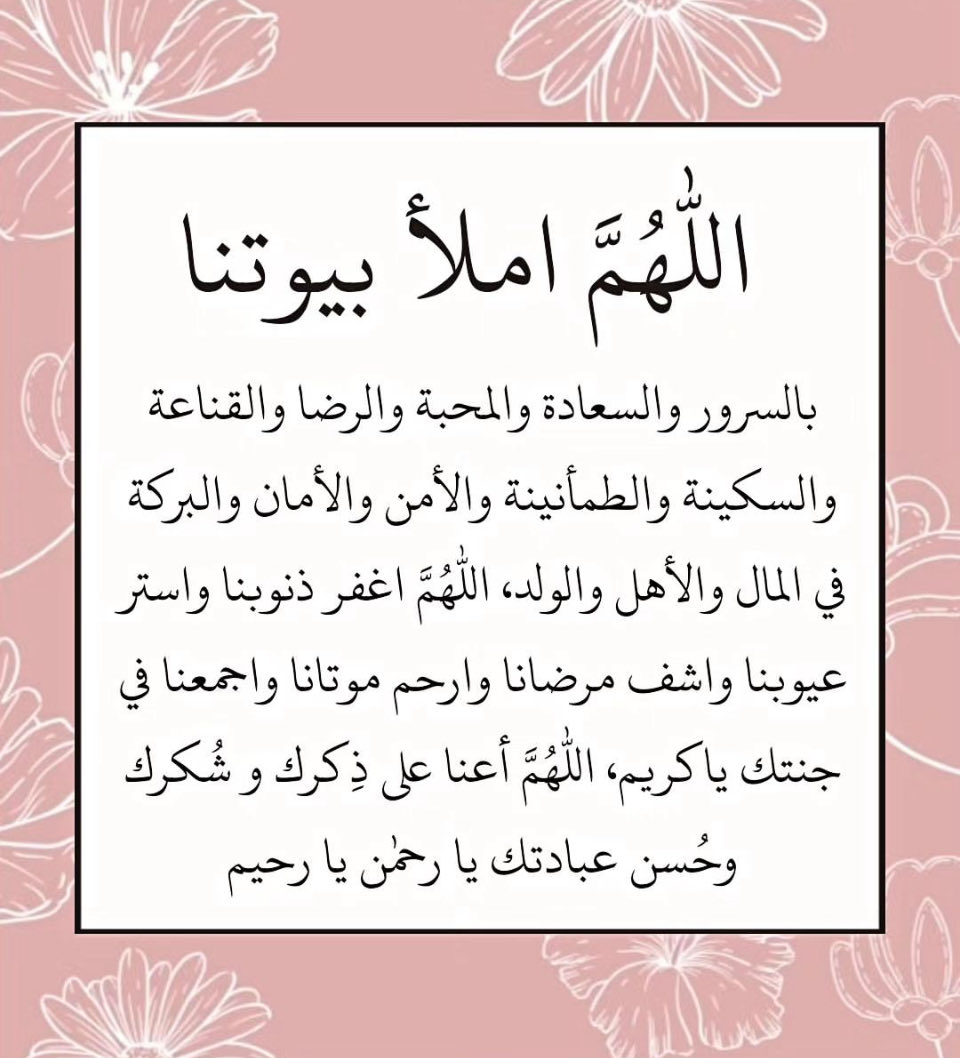 اللّٰهُمَّ املأ بيوتنا
بالسرور والسعادة والمحبة والرضا والقناعة
والسكينة والطمأنينة والأمن والأمان والبركة
في المال والأهل والولد، اللّٰهُمَّ اغفر ذنوبنا واستر
عيوبنا واشف مرضانا وارحم موتانا واجمعنا في
جنتك ياكريم، اللّٰهُمَّ أعنا على ذِكرك و شُكرك
وحُسن عبادتك يا رحمٰن يا رحيم